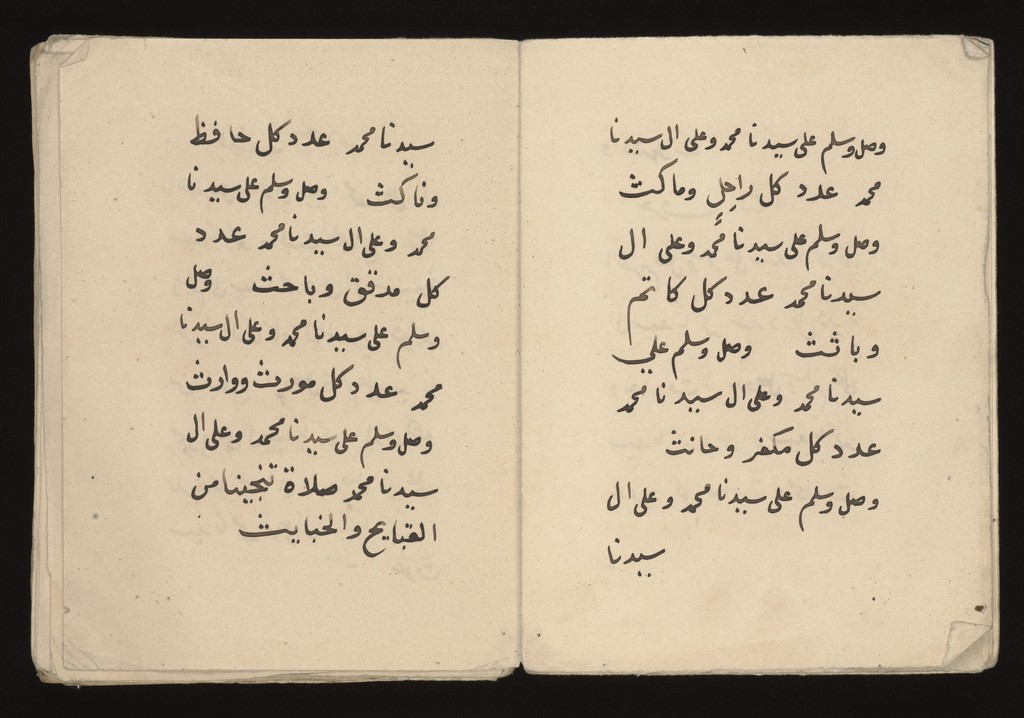 وصل وسلم على سيدنا محمد وعلى ال سيدنا
محمد عدد كل راحل وماكث
وصل وسلم على سيدنا محمد وعلى ال
سيدنا محمد عدد كل كاتم
وباثث وصل وسلم علي
سيدنا محمد وعلى ال سيدنا محمد
عدد كل مكفر وحانث
وصل وسلم على سيدنا محمد وعلى ال
سيدنا
سيدنا محمد عدد كل حافظ
وناكث وصل وسلم على سيدنا
محمد وعلى ال سيدنا محمد عدد
كل مدقق وباحث وصل
وسلم على سيدنا محمد وعلى ال سيدنا
محمد عدد كل مورث ووارث
وصل وسلم على سيدنا محمد وعلى ال
سيدنا محمد صلاة تنجينا من
القبايح والخبايث